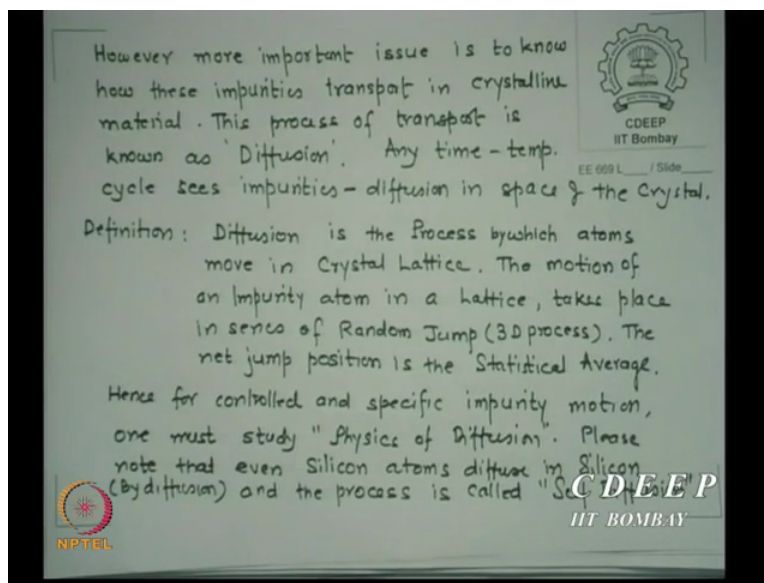 However more important issue is to know
how these impurities transport in crystalline
material. This process of transport is
known as 'Diffusion'. Any time-temp.
cycle sees impurities-diffusion in space & the Crystal.
Definition: Diffusion is the Process bywhich atoms
move in Crystal Lattice. The motion of
an Impurity atom in a Lattice, takes place
in series of Random Jump (3D process). The
net jump position is the Statistical Average.
Hence for controlled and specific impurity motion,
one must study "Physics of Diffusion". Please
note that even Silicon atoms diffuse in Silicon
(By diffusion) and the process is called "Self Diffusion"
CDEEP
IIT Bombay
EE 669 L___ / Slide___
NPTEL
CDEEP
IIT BOMBAY